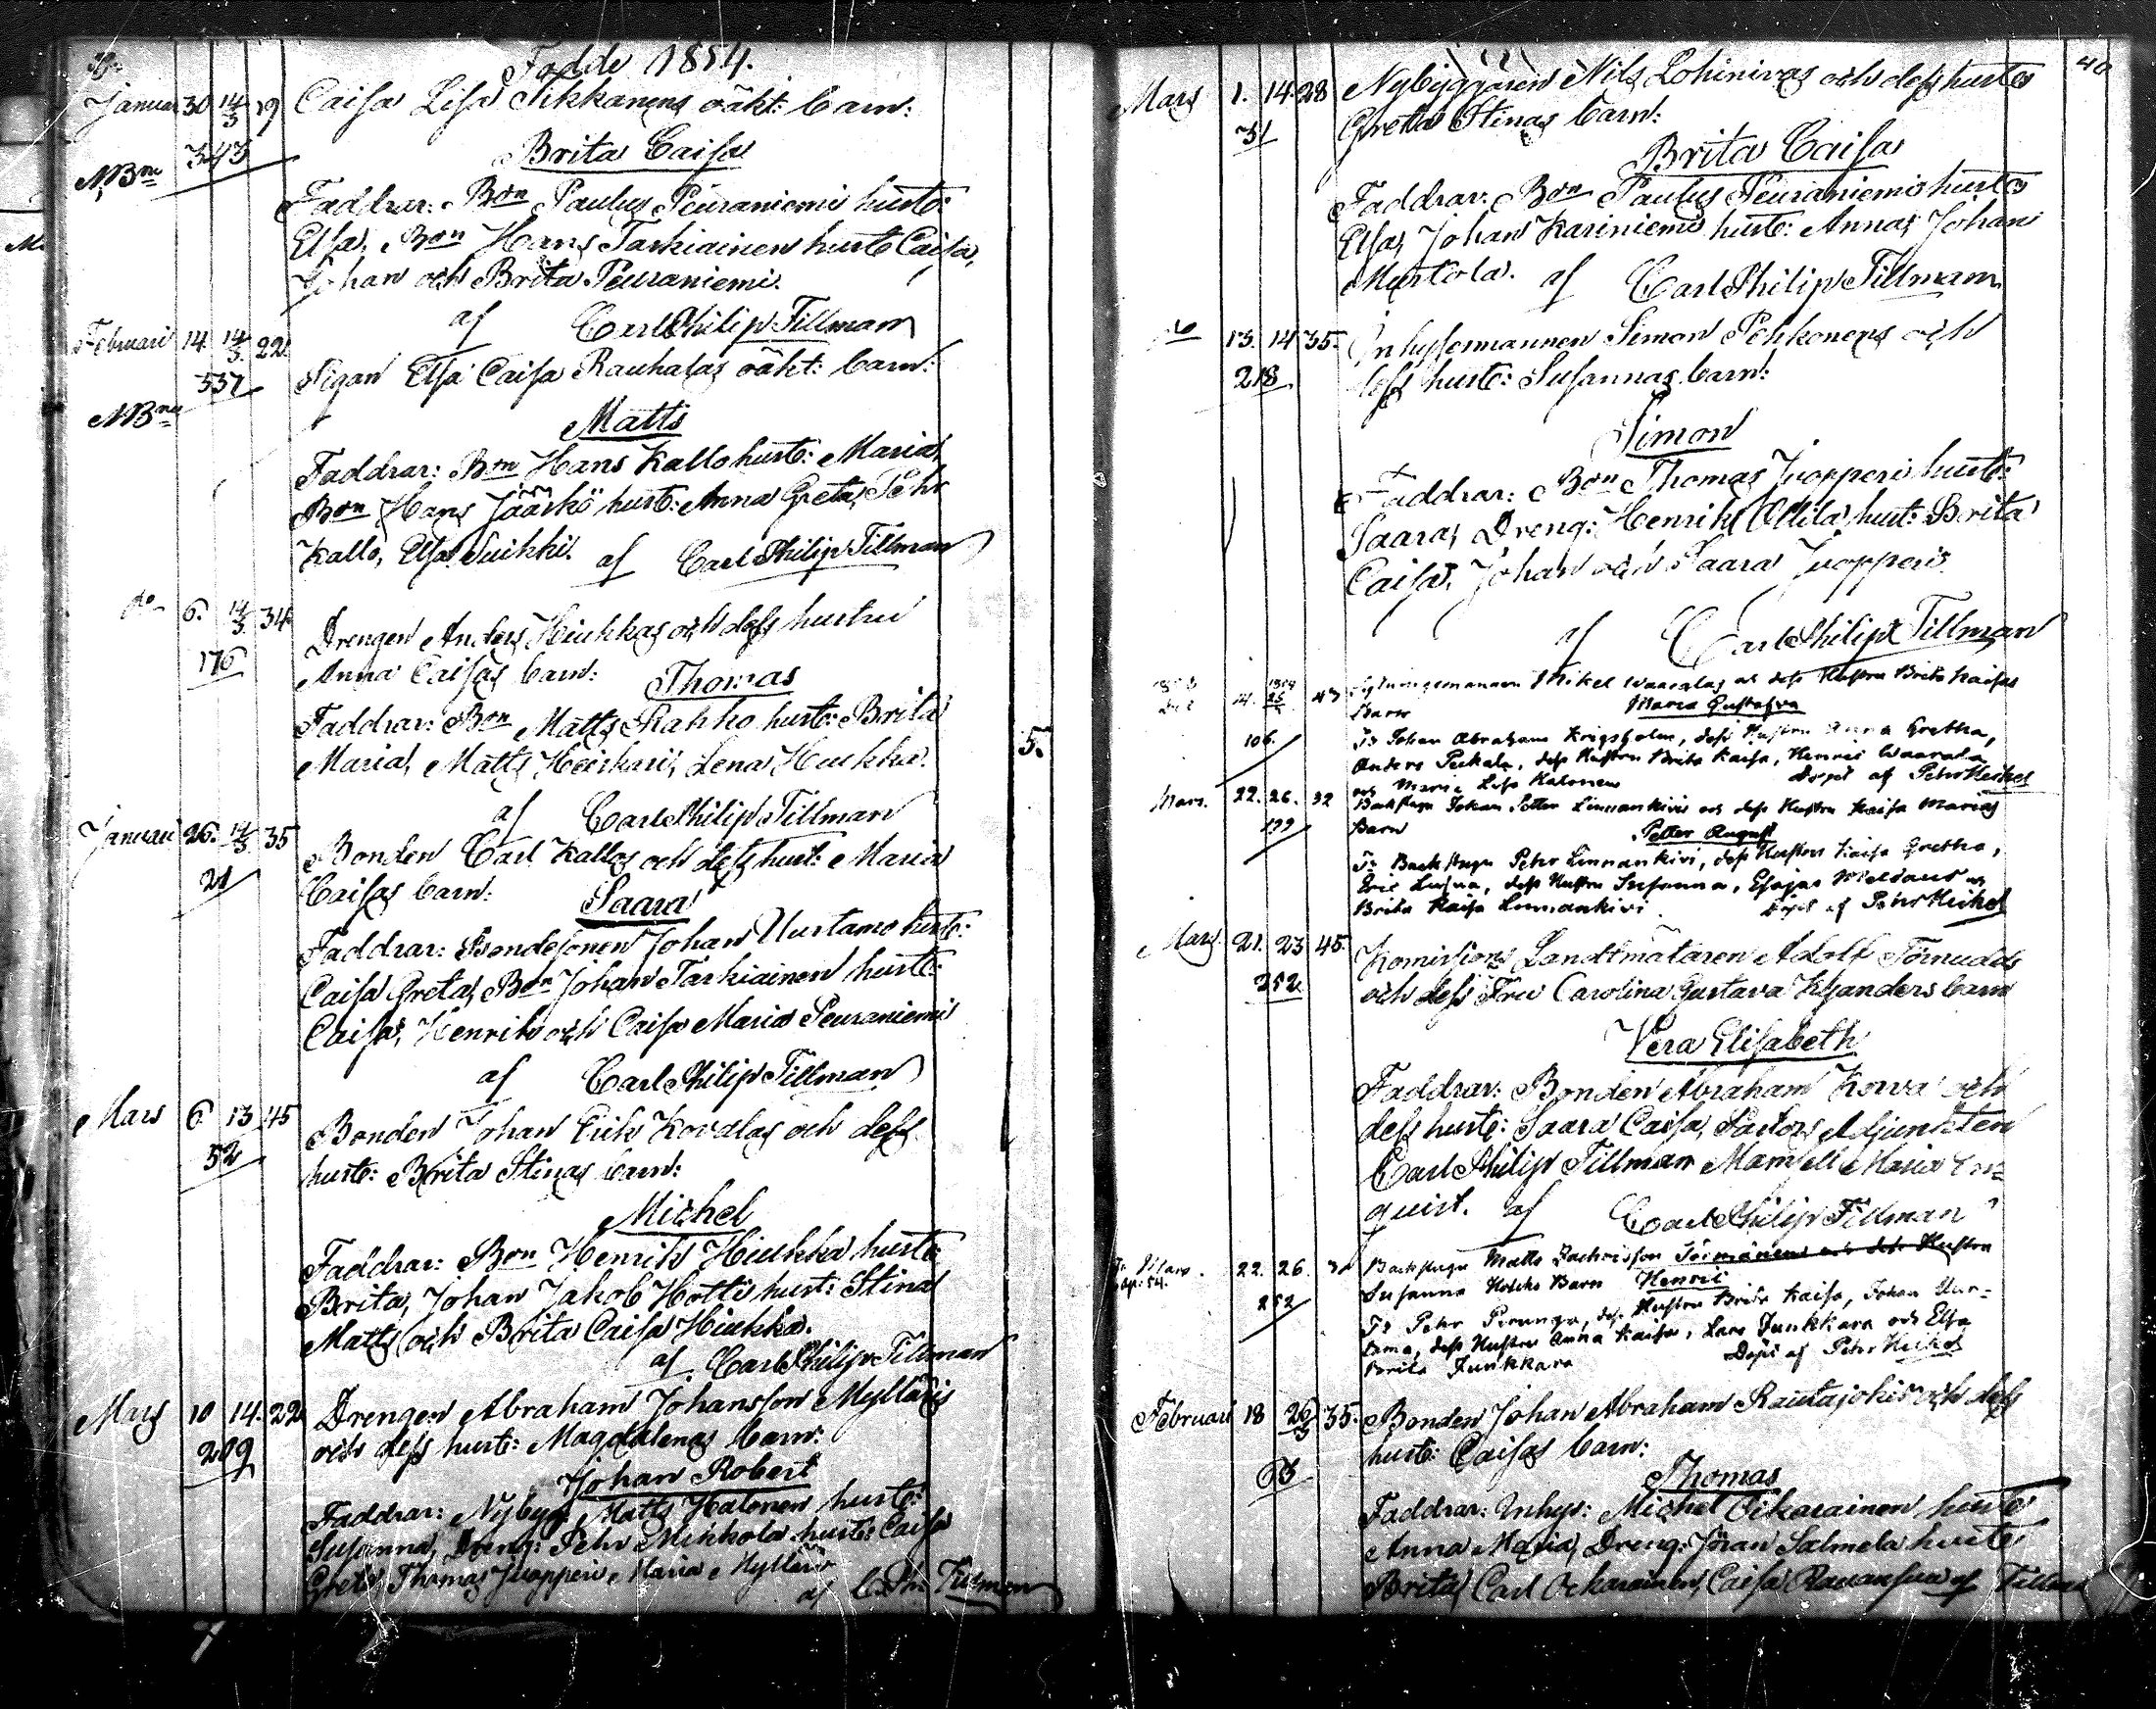 Födde 1854.
Januari 30 14/3 29 Caisa Lisa Sikkanens oäkt: barn:
343
NB Brita Caisa
Faddrar: Bon Paulus Peuraniemi hust:
Elsa, Bon Hans Tarkiainen hust: Caisa,
Johan och Brita Peuraniemi.
af Carl Philip Tillman
Februari 14. 14/3. 22. Pigan Elsa Caisa Rauhalas oäkt: barn:
537
NB Matts
Faddrar: Bon Hans Kallo hust: Maria,
Bon Hans Jääskö hust: Anna Greta, Pehr
Kallo, Elsa Suikki. af Carl Philip Tillman
do 6. 14/3. 34 Drengen Anders Hiukkas och dess hustru
176 Anna Caisas barn: Thomas
Faddrar: Bon Matts Rahko hust: Brita
Maria, Matts Heiskari, Lena Hiukka.
af Carl Philip Tillman
Januari 26. 14/3. 35 Bonden Carl Kallos och dess hust: Maria
21 Caisas barn: Saara
Faddrar: Bondesonen Johan Uurtamo hust:
Caisa Greta, Bon Johan Tarkiainen hust:
Caisa, Henrik och Caisa Maria Peuraniemi
af Carl Philip Tillman
Mars 6 13 45 Bonden Johan Erik Kovalas och dess
52 hust: Brita Stinas barn:
Michel
Faddrar: Bon Henrik Hiukka hust:
Brita, Johan Jakob Hotti hust: Stina
Matts och Brita Caisa Hiukka.
af Carl Philip Tillman
Mars 10 14. 22 Drengen Abraham Johansson Mylläris
209 och dess hust: Magdalenas barn:
Johan Robert
Faddrar: Nybyg: Matts Halonen hust:
Susanna, Dreng: Pehr Mikkola hust: Caisa
Greta, Thomas Juopperi, Maria Mylläri
af C. Ph. Tillman
5.
40
Mars 1. 14. 28 Nybyggaren Nils Lohinivas och dess hust:
31 Greta Stinas barn:
Brita Caisa
Faddrar: Bon Paulus Peuraniemi hust:
Elsa, Johan Kariniemi hust: Anna, Johan
Murtola. af Carl Philip Tillman
do 13. 14 35. Inhysesmannen Simon Pekkonens och
218 dess hust: Susannas barn:
Simon
Faddrar: Bon Thomas Juopperi hust:
Saara, Dreng: Henrik Ollila hust: Brita
Caisa, Johan och Saara Juopperi.
af Carl Philip Tillman
Mikel Waaralas och dess Hustru Brita Kaisas
Barn Maria Gustafva
106. Fr Johan Abraham Krigsholm, dess Hustru Anna Gretha,
Anders Pekkala, dess Hustru Brita Kaisa, Henric Waarala
och Maria Lisa Halonen Döpt af Pehr Heikel
Mars. 22. 26. 32 Backstugu Johan Petter Linnankivis och dess Hustru Kaisa Marias
199 Barn Petter August
Fr Backstugu Pehr Linnankivi, dess Hustru Kaisa Gretha,
Eric Luusua, dess Hustru Susanna, Esajas
Brita Kaisa Linnankivi Döpt af Pehr Heikel
Mars. 21. 23 45. Komissions Landtmätaren Adolf Törnudds
252 och dess Fru Carolina Gustava Kyanders barn
Vera Elisabeth
Faddrar: Bonden Abraham Korva och
dess hust: Saara Caisa, Pastors Adjunkten
Carl Philip Tillman Mamsell Maria
quist. af Carl Philip Tillman
Mars. 22. 26. Backstugu Matts Zachrisson Törmänens och dess Hustru
252 Susanna Barn Henric
Fr Pehr Pirunga, dess Hustru Brita Kaisa, Johan
dess Hustru Anna Kaisa, Lars Junkkara och Elsa
Brita Junkkara Döpt af Pehr Heikel
Februari 18 26/3 35. Bonden Johan Abraham Rautajokis och dess
63 hust: Caisas barn:
Thomas
Faddrar: Inhys: Michel Oikarainen hust:
Anna Maria, Dreng: Jöran Salmela hust:
Brita, Carl Oikarainen, Caisa af Tillman